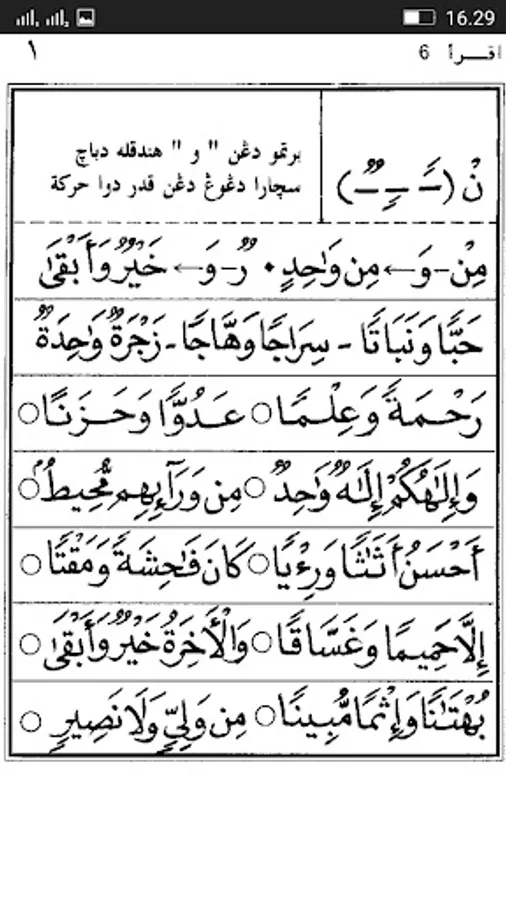 16.29
اقــرأ 6 ١
نْ (ــًــ ــٍــ ــٌــ) برتمو دڠن " و " هندقله دباچ
سچارا دڠوڠ دڠن قدر دوا حركة
مِنْ-وَ←مِن وَٰحِدٍ • رٌ-وَ←خَيْرٌ وَأَبْقَىٰ
حَبًّا وَنَبَاتًا - سِرَاجًا وَهَّاجًا - زَجْرَةٌ وَٰحِدَةٌ
رَحْمَةً وَعِلْمًا ○ عَدُوًّا وَحَزَنًا ○
وَإِلَٰهُكُمْ إِلَٰهٌ وَٰحِدٌ ○ مِن وَرَآئِهِم مُّحِيطٌ ○
أَحْسَنُ أَثَٰثًا وَرِءْيًا ○ كَانَ فَٰحِشَةً وَمَقْتًا ○
إِلَّا حَمِيمًا وَغَسَّاقًا ○ وَالْأَخِرَةُ خَيْرٌ وَأَبْقَىٰ ○
بُهْتَٰنًا وَإِثْمًا مُّبِينًا ○ مِن وَلِيٍّ وَلَا نَصِيرٍ ○